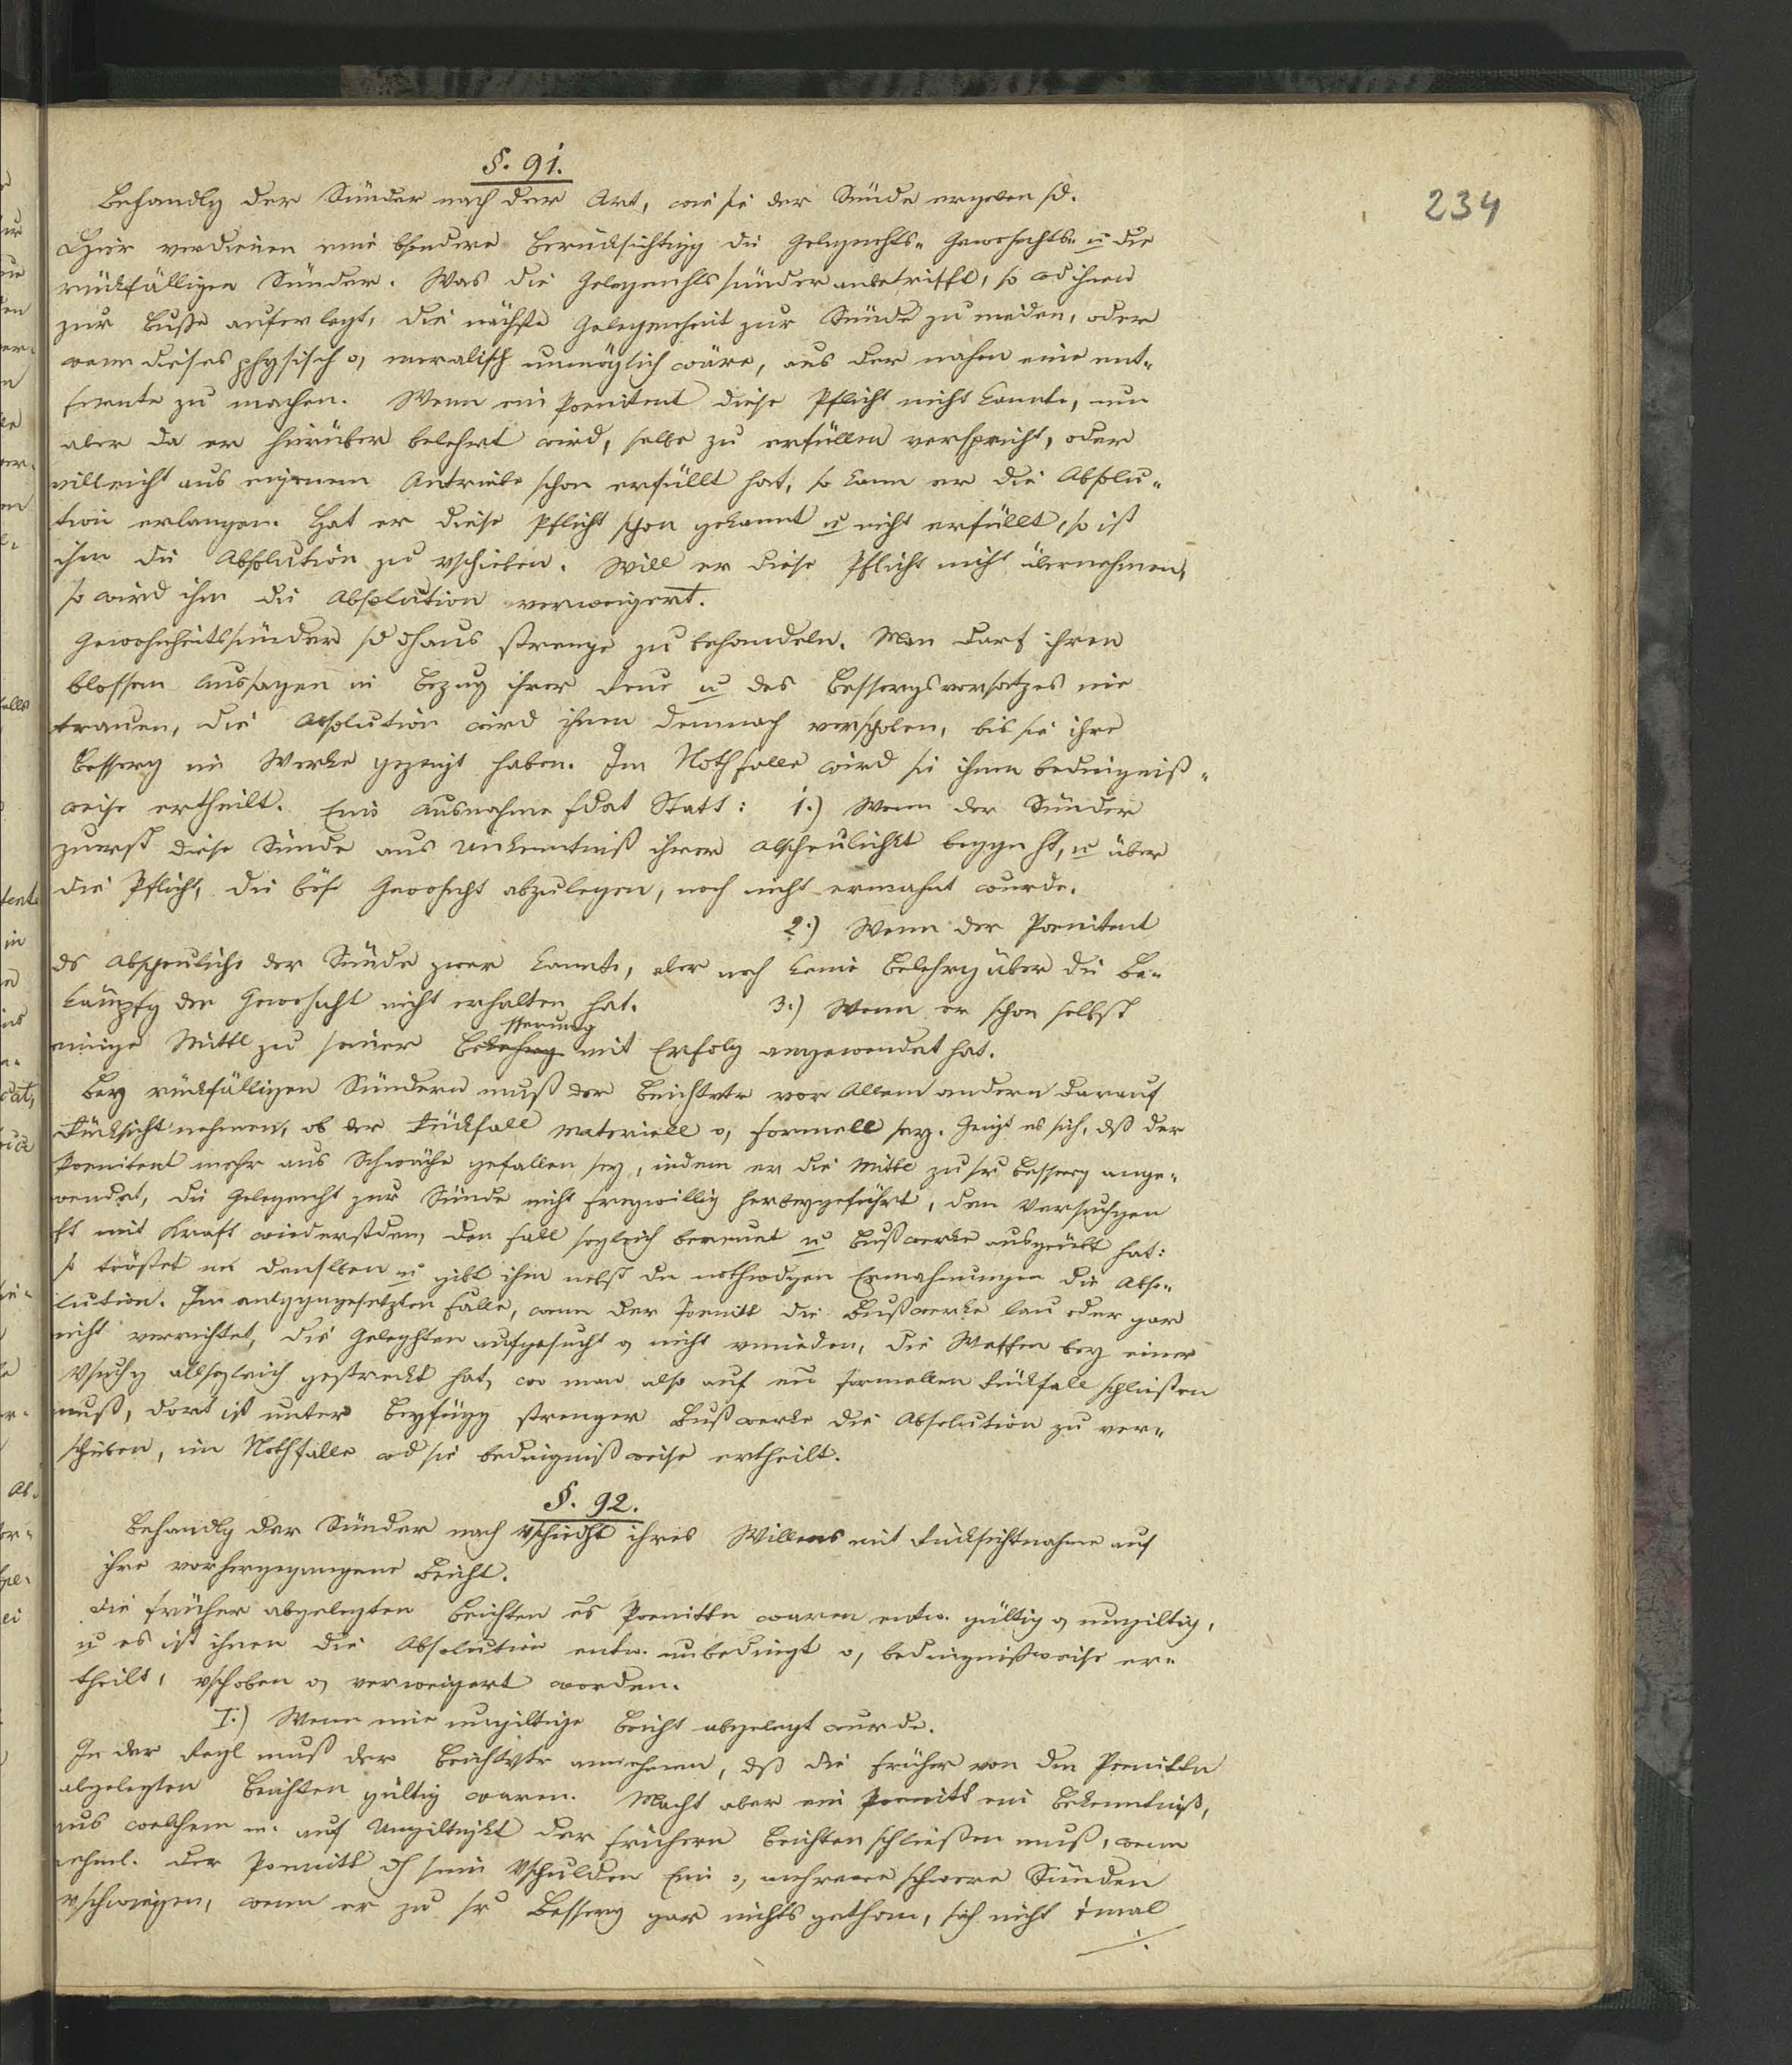 §. 91.
234
Behandlg der Sünder nach der Art, wie sie der Sünde ergeben sd.
Hier verdienen eine bsondere Berücksichtigg die Gelegenhts- Gewohnhts- u die
rückfälligen Sünder. Was die Gelegenhtssünder anbetrifft, so wd ihnen
zur Buße auferlegt, die nächste Gelegenheit zur Sünde zu meiden, oder
wenn dieses physisch o, moralisch unmöglich wäre, aus der nahen eine ent-
fernte zu machen. Wenn ein Poenitent diese Pflicht nicht kannte, nun
aber da er hierüber belehrt wird, selbe zu erfüllen verspricht, oder
villeicht aus eigenem Antriebe schon erfüllt hat, so kann er die Absolu-
tion erlangen. Hat er diese Pflicht schon gekannt u nicht erfüllt, so ist
ihm die Absolution zu vschieben. Will er diese Pflicht nicht übernehmen,
so wird ihm die Absolution verweigert.
Gewohnheitssünder sd dhaus strenge zu behandeln. Man darf ihren
blossen Aussagen in Bezug ihrer Reue u des Bessergsvorsatzes nie
trauen, die Absolution wird ihnen demnach verschoben, bis sie ihre
Besserg im Werke gezeigt haben. Im Nothfalle wird sie ihnen bedingniß-
weise ertheilt. Eine Ausnahme fdat Statt: 1.) Wenn der Sünder
zuerst diese Sünde aus Unkenntniß ihrer Abscheulichkt begght, u über
die Pflicht, die böse Gewohnht abzulegen, noch nicht ermahnt wurde.
2.) Wenn der Poenitent
ds Abscheuliche der Sünde zwar kannte, aber noch keine Belehrg über die Be-
kämpfg der Gewohnht nicht erhalten hat. 3.) Wenn er schon selbst
sserung
einige Mittl zu seiner Bekehrg mit Erfolg angewendet hat.
Bey rückfälligen Sündern muß der Beichtvtr vor Allem andern darauf
Rücksicht nehmen, ob der Rückfall materiell o, formell sey. Zeigt es sich, dß der
Poenitent mehr aus Schwäche gefallen sey, indem er die Mittl zu sr Besserg ange-
wendet, die Gelegenht zur Sünde nicht freywillig herbeygeführt, den Versuchgen
ft mit Kraft wiederstden, den Fall sogleich bereuet u Bußwerke ausgeübt hat:
so tröstet m denslben u gibt ihm nebst den nothwdgen Ermahnungen die Abso-
lution. Im entggngesetzten Falle, wenn der Poenitt die Bußwerke lau oder gar
nicht verrichtet, die Gelegnhten aufgesucht o, nicht vmieden, die Waffen bey einer
Vsuchg allsogleich gestreckt hat, wo man also auf ein formellen Rückfall schließen
muß, dort ist unter Beyfügg strenger Bußwerke die Absolution zu ver-
schieben, im Nothfalle wd sie bedingnißweise ertheilt.
§. 92.
Behandlg der Sünder nach Vschiedht ihres Willens mit Rücksichtnahme auf
ihre vorhergegangene Beicht.
Die früher abgelegten Beichten es Poenittn waren entw. gültig o, ungiltig,
u es ist ihnen die Absolution entw. unbedingt o, bedingnißweise er-
theilt, vschoben o, verweigert worden.
I.) Wenn eine ungiltige Beicht abgelegt wurde.
In der Regl muß der Beichtvtr annehmen, dß die früher von den Poenittn
abgelegten Beichten gültig waren. Macht aber ein Poenitt ein Bekenntniß,
aus welchem m. auf Ungiltigkt der frühern Beichten schließen muß, wenn
nehml. der Poenitt dh sein Vschulden Eine o, mehrere schwere Sünden
vschwiegen, wenn er zu sr Besserg gar nichts gethan, sich nicht 1mal
./.